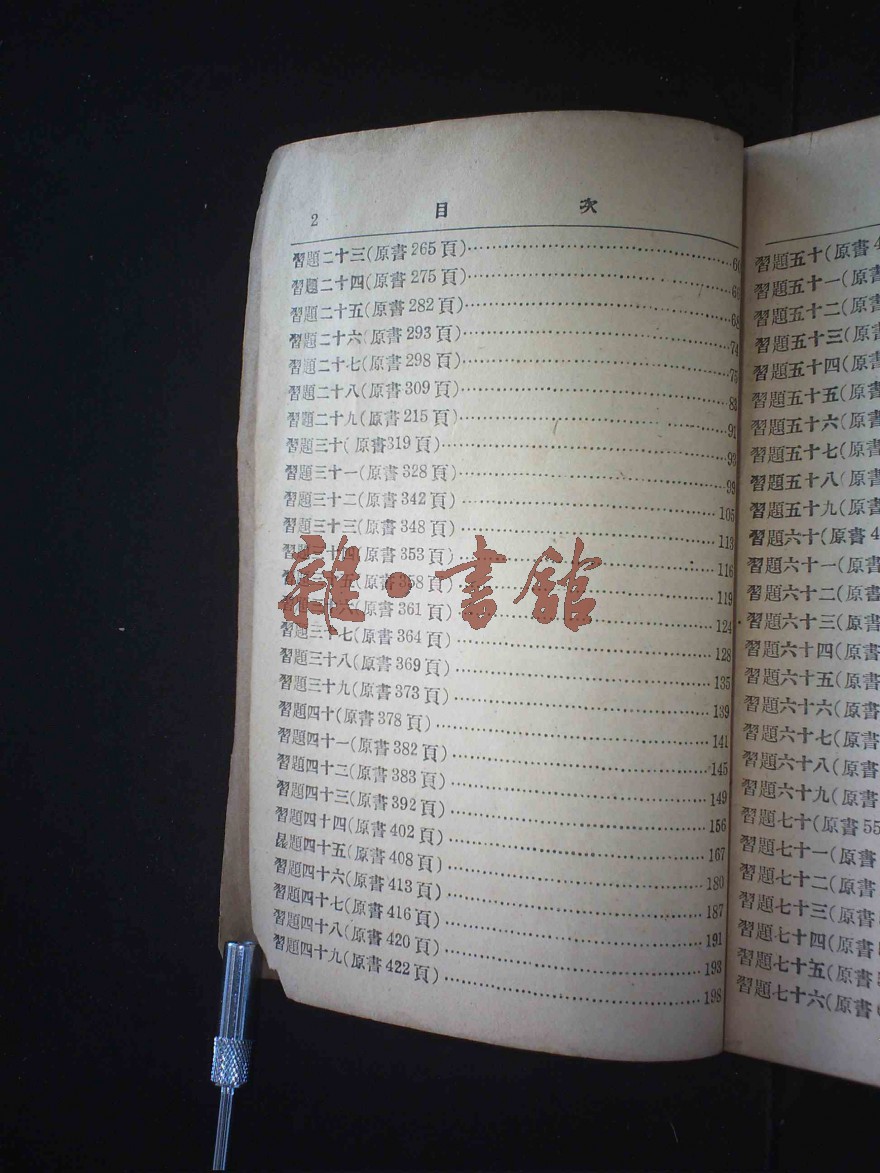 2 目 次
習題二十三(原書265頁)……
習題二十四(原書275頁)……
習題二十五(原書282頁)……68
習題二十六(原書293頁)……74
習題二十七(原書298頁)……75
習題二十八(原書309頁)……83
習題二十九(原書215頁)……91
習題三十(原書319頁)……93
習題三十一(原書328頁)……99
習題三十二(原書342頁)……105
習題三十三(原書348頁)……113
習題三十四(原書353頁)……116
習題三十五(原書358頁)……119
習題三十六(原書361頁)……124
習題三十七(原書364頁)……128
習題三十八(原書369頁)……135
習題三十九(原書373頁)……139
習題四十(原書378頁)……141
習題四十一(原書382頁)……145
習題四十二(原書383頁)……149
習題四十三(原書392頁)……156
習題四十四(原書402頁)……167
昆題四十五(原書408頁)……180
習題四十六(原書413頁)……187
習題四十七(原書416頁)……191
習題四十八(原書420頁)……193
習題四十九(原書422頁)……198
雜·書館
習題五十(原書4
習題五十一(原書
習題五十二(原書
習題五十三(原書
習題五十四(原書
習題五十五(原書
習題五十六(原書
習題五十七(原書
習題五十八(原書
習題五十九(原書
習題六十(原書4
習題六十一(原書
習題六十二(原書
習題六十三(原書
習題六十四(原書
習題六十五(原書
習題六十六(原書
習題六十七(原書
習題六十八(原書
習題六十九(原書
習題七十(原書55
習題七十一(原書
習題七十二(原書
習題七十三(原書
習題七十四(原書
習題七十五(原書
習題七十六(原書